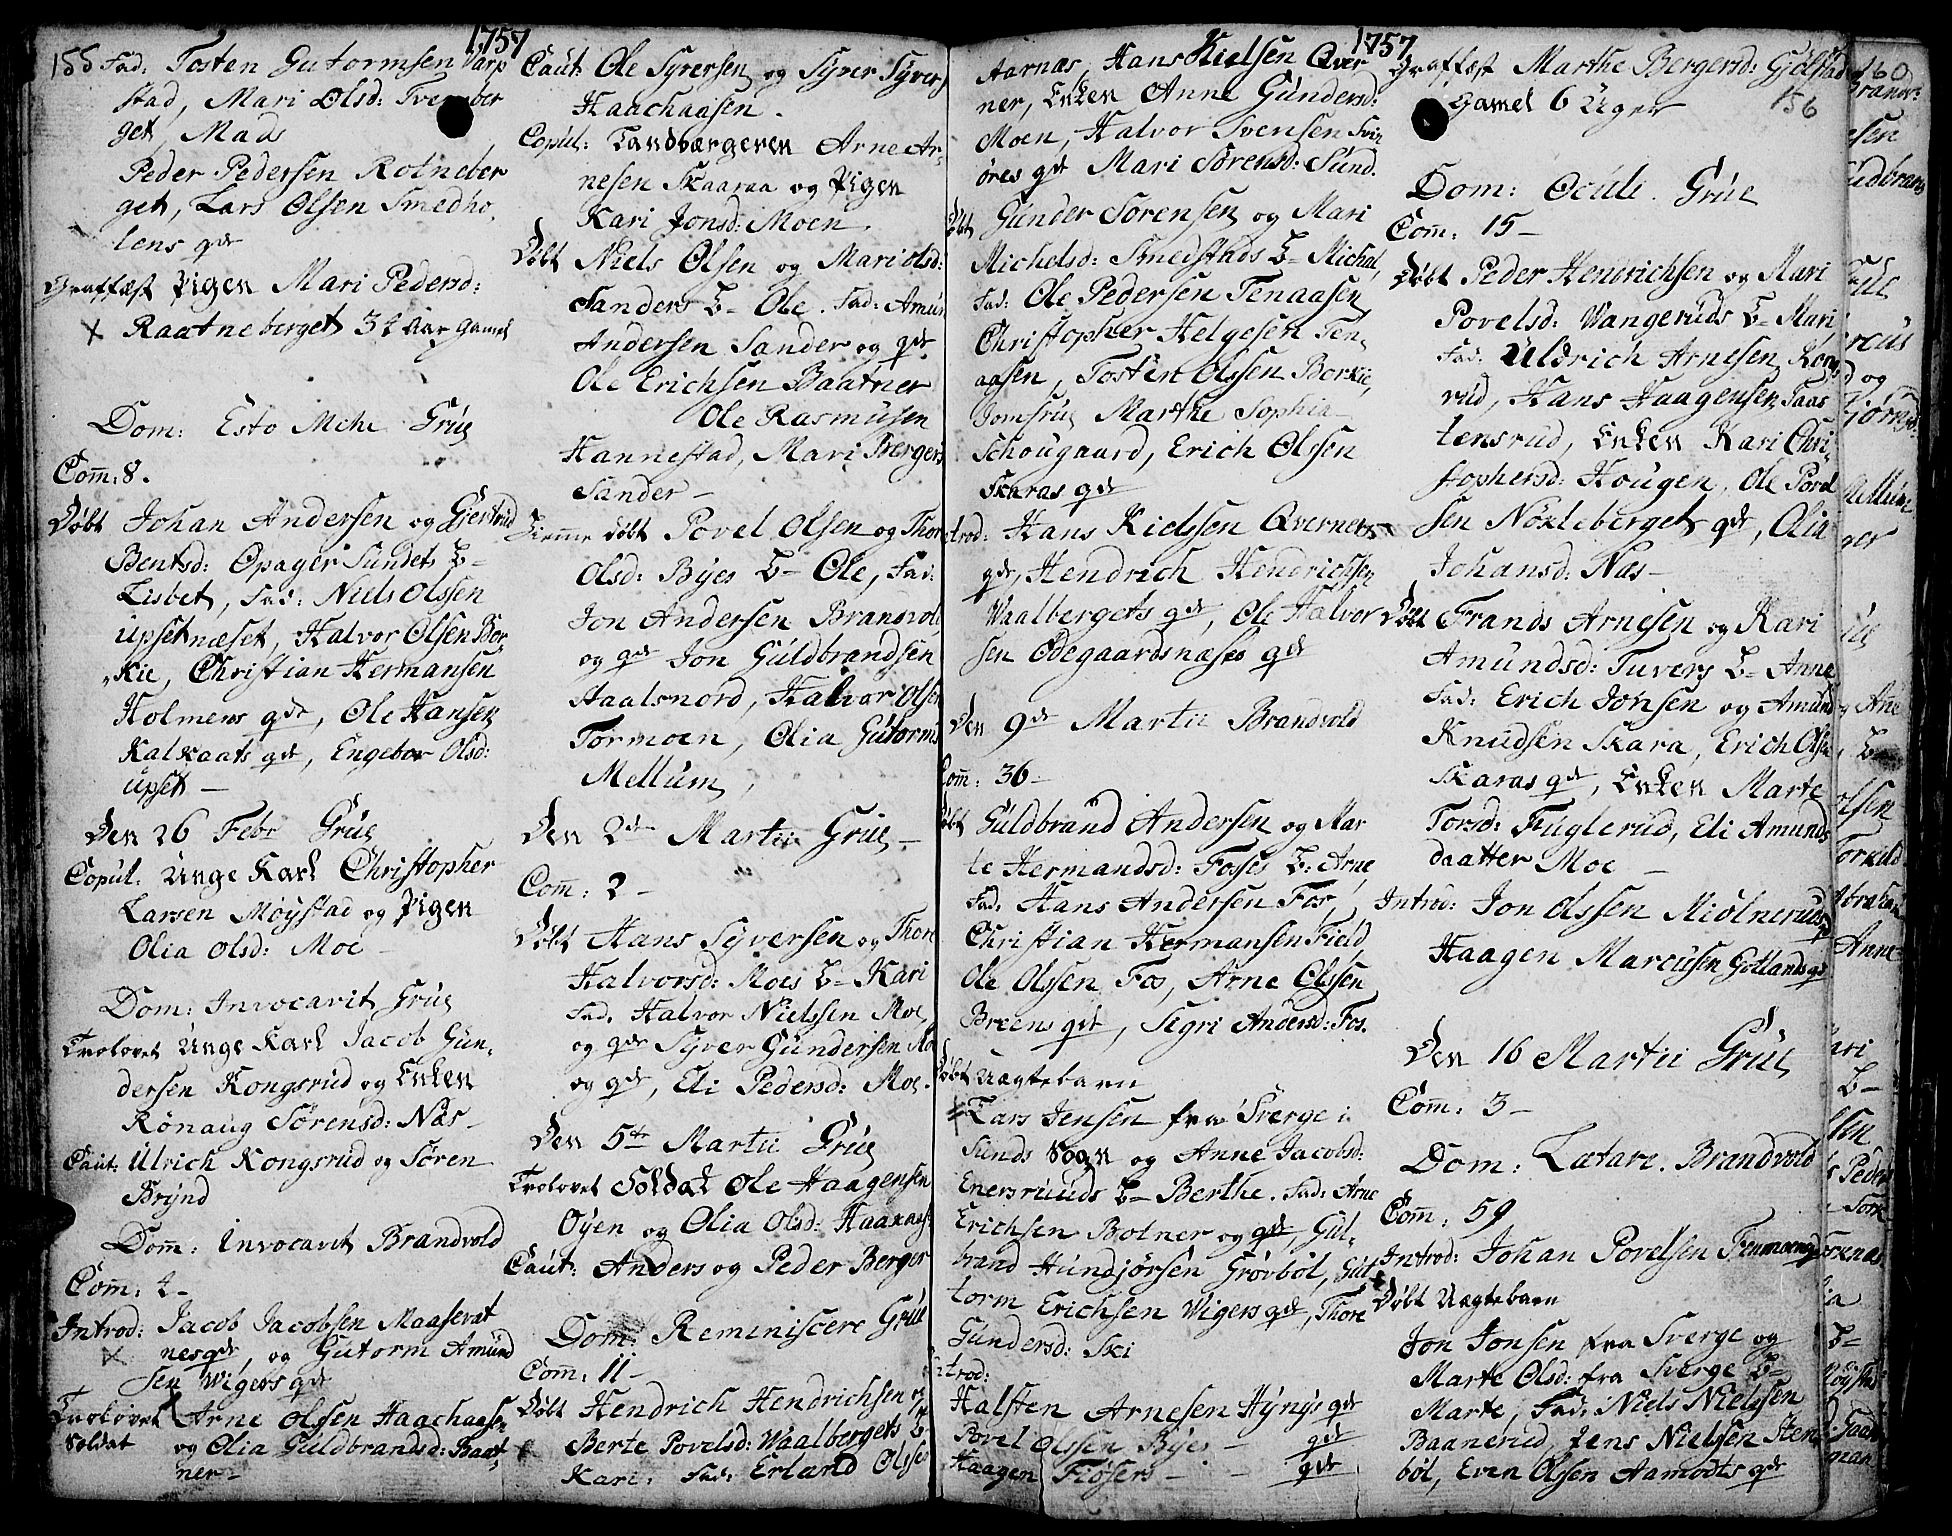 155 1757
Fad: Tosten Gutormsen Varp
stad, Mari Olsd: Tvenber
get, Mads
Peder Pedersen Rotneber
get, Lars Olsen Smedho,
lens qde
Graffæst Pigen Mari Pedersd:
Raatneberget 32 Aar Gamel
Dom: Esto Mehi Grue
Com: 8.
Døbt Johan Andersen og Giertrud
Bentsd: Opager Sundets B-
Lisbet, Fad: Niels Olssen
Upsetnæset, Halvor Olsen Bor
kie, Christian Hermansen
Holmens qde, Ole Hansen
Kalkaats qde, Engebor Olsd:
Upset –
Den 26 Febr Grue
Copul: Unge Karl Christopher
Larsen Møystad og Pigen
Olia Olsd: Moe –
Dom: Invocavit Grue
Trolovet Unge Karl Jacob Gun,
dersen Kongsrud og Enken
Rønaug Sørensd: Nas –
Caut: Ulrich Kongsrud og Søren
Brynd
Dom: Invocavit Brandvold
Com: 4 –
Introd: Jacob Jacobsen Maaserat
nes qde, og Gutorm Amund
sen Wigers qde
Trolovet Arne Olsen Haachaasen
Soldat og Olia Guldbrandsd: Baat,
ner –
Caut: Ole Syversen og Syver Syvers
Haachaasen.
Copul: Landværgeren Arne Ar,
nesen Skaaraa og Pigen
Kari Jonsd: Moen.
Døbt Niels Olsen og Mari Olsd:
Sanders B- Ole. Fad: Amun
Andersen Sander og qde
Ole Erichsen Baatner
Ole Rasmusen
Hannestad, Mari Bergers
Sander –
Hiemme døbt Povel Olsen og Thor
Olsd: Byes B- Ole, Fad:
Jon Andersen Branvol
og qde Jon Guldbrandsen
Haalsnord, Halvor Olsen
Tormoen, Olia Gutorms
Mellum,
Den 2de Martii Grue –
Com: 2 –
Døbt Hans Syversen og Thore
Halvorsd: Moes B- Kari
Fad. Halvor Nielssen Moe,
og qde Syver Gundersen Mo
og qde, Eli Pedersd: Moe.
Den 5te Martii Grue
Trolovet Soldat Ole Haagensen
Øyen og Olia Olsd: Haaxaas:
Caut: Anders og Peder Berger
Dom: Reminiscere Grue
Com: 11 –
Døbt Hendrich Hendrichsen og
Berte Povelsd: Waalbergets B-
Kari. Fad: Erland Olsse
1757
Aarnæs, Hans Kielsen Qver
ner, Enken Anne Gundersd:
Moen, Halvor Svensen Svin
øres qde Mari Sørensd: Sund.
Døbt Gunder Sørensen og Mari
Michelsd: Smedstads B- Michal,
Fad: Ole Pedersen Tenaasen,
Christopher Helgesen Ten,
aasen, Tosten Olssen Borkie,
Jomfrue Marthe Sophia
Schougaard, Erich Olssen
Skaras qde
Introd: Hans Kielssen Qverners
qde, Hendrich Hendrichsen
Waalbergets qde, Ole Halvor
sen Ødegaardsnæses qde
Den 9de Martii Brandvold
Com: 36 –
Døbt Guldbrand Andersen og Mar
te Hermandsd: Foses B- Arne,
Fad: Hans Andersen Fos,
Christian Hermansen Field
Ole Olssen Fos, Arne Olssen
Breens qde, Segri Andersd: Fos.
Døbt Uægtebarn
Lars Jensen fra Sverge i
Sunds Sogn og Anne Jacobsd:
Enersruuds B- Berthe. Fad: Arne
Erichsen Botner og qde, Gul,
brand Hundjørsen Grøvbøl, Gut
torm Erichsen Wigers qde, Thore
Gundersd: Ski
Introd:
Halsten Arnesen Hynys qde
Povel Olssen Byes – qde
Haagen Fiøsers – – qde
156
Graffæst Marthe Bergersd: Gjølstad
Gamel 6 Uger
Dom: Oculi. Grue
Com: 15 –
Døbt Peder Hendrichsen og Mari
Povelsd: Wangeruds B- Mari
Fad: Uldrich Arnesen Kong
rud, Hans Haagensen Taas
tensrud, Enken Kari Chri,
stophersd: Hougen, Ole Povel
sen Nøkleberget qde, Olia
Johansd: Nas –
Døbt Frands Arnesen og Kari
Amundsd: Tuvers B- Anne
Fad: Erich Jonsen og Amund
Knudsen Skara, Erich Olsen
Skaras qde, Enken Marte
Torsd: Fuglerud, Eli Amunds
daatter Moe –
Introd: Jon Olssen Miølneruds qde
Haagen Marcusen Gotlands qde
Den 16 Martii Grue
Com: 3 –
Dom: Lætare. Brandvold
Com: 59
Introd: Johan Povelsen Tenmoens qde
Døbt Uægtebarn
Jon Jonsen fra Sverge og
Marte Olsd: fra Sverge B-
Marte, Fad: Niels Nielssen
Baanerud, Jens Nielsen Hen
bøl, Even Olssen Aamodts qde